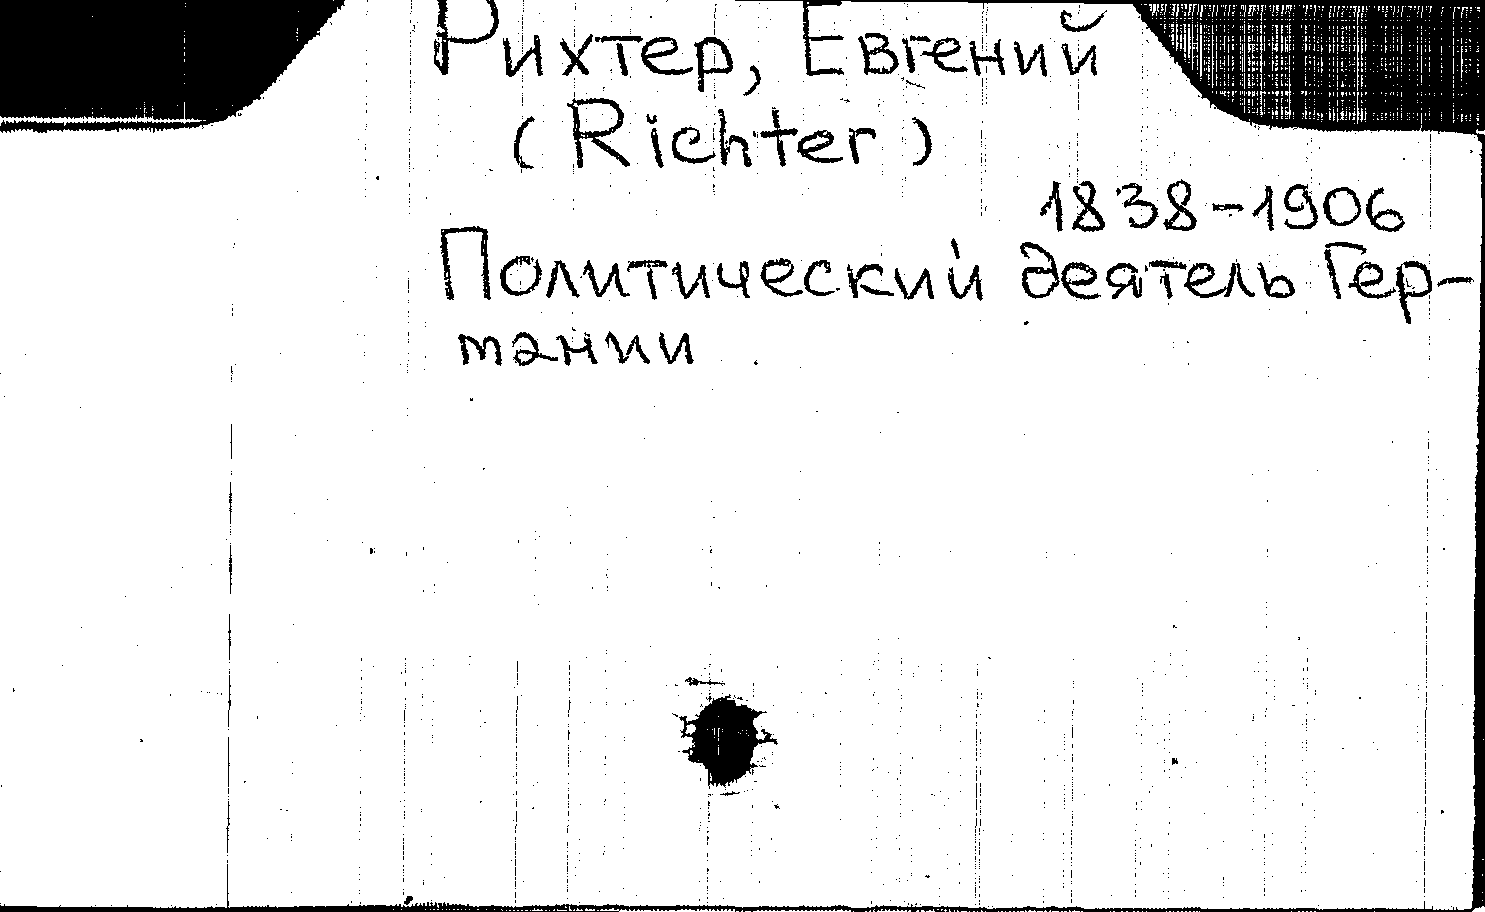 Рихтер, Евгений
(Richter)
1838-1906
Политический деятель Гер-
мании